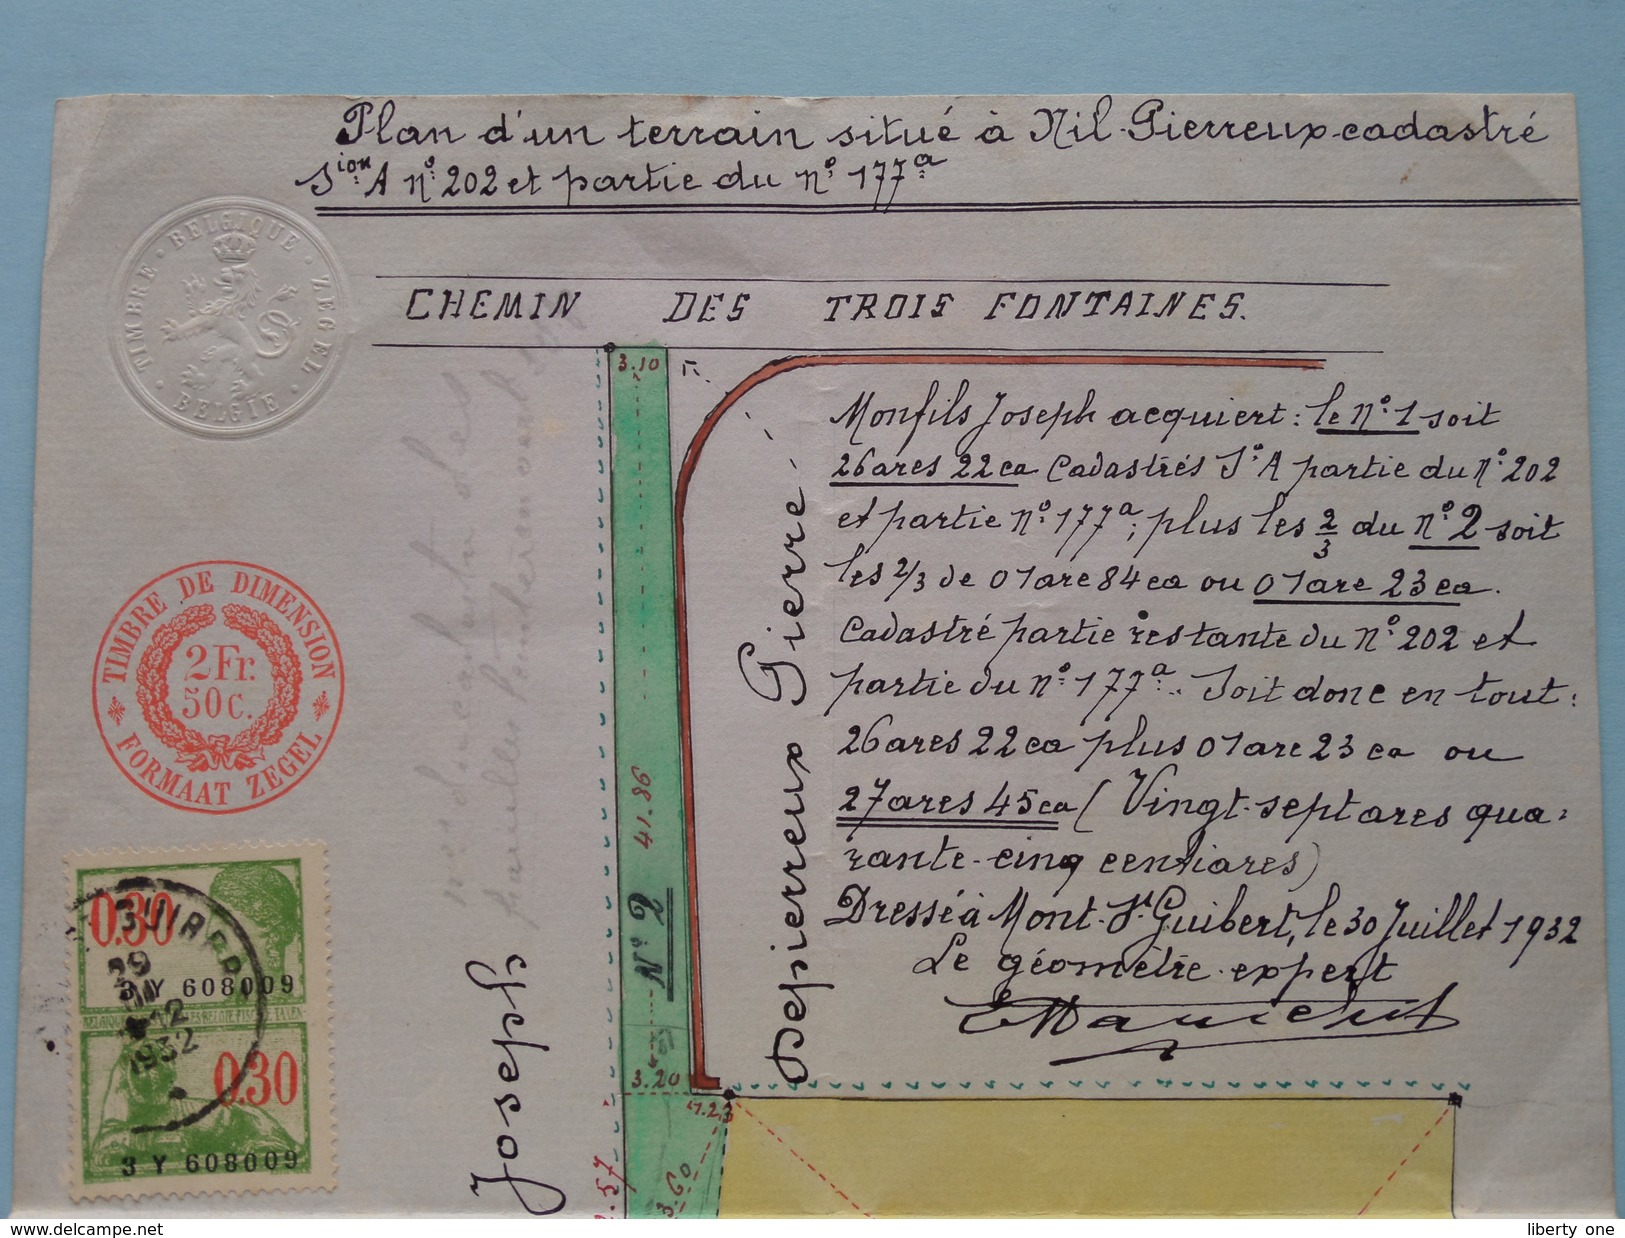 Plan d'un terrain situé à Nil-Pierreux cadastré
Sion A n° 202 et partie du n° 177a
TIMBRE · BELGIQUE · ZEGEL · BELGIE ·
CHEMIN DES TROIS FONTAINES.
3.10
Monfils Joseph acquiert : le N° 1 soit
26 ares 22 ca cadastrés Sn A partie du N° 202
et partie N° 177a, plus les 2/3 du N° 2 soit
les 2/3 de 01 are 84 ca ou 01 are 23 ca.
Cadastré partie restante du N° 202 et
partie du N° 177a. Soit donc en tout :
26 ares 22 ca plus 01 are 23 ca ou
27 ares 45 ca ( Vingt-sept ares qua-
rante-cinq centiares)
Dressé à Mont-St Guibert, le 30 Juillet 1932
Le géomètre-expert
Depierreux Pierre
TIMBRE DE DIMENSION
2 Fr.
50 C.
FORMAAT ZEGEL
41.86
N° 2
3.20
1.23
3.60
Joseph
0.30
3 Y 608009
0.30
3 Y 608009
29
12
1932
www.delcampe.net
liberty_one